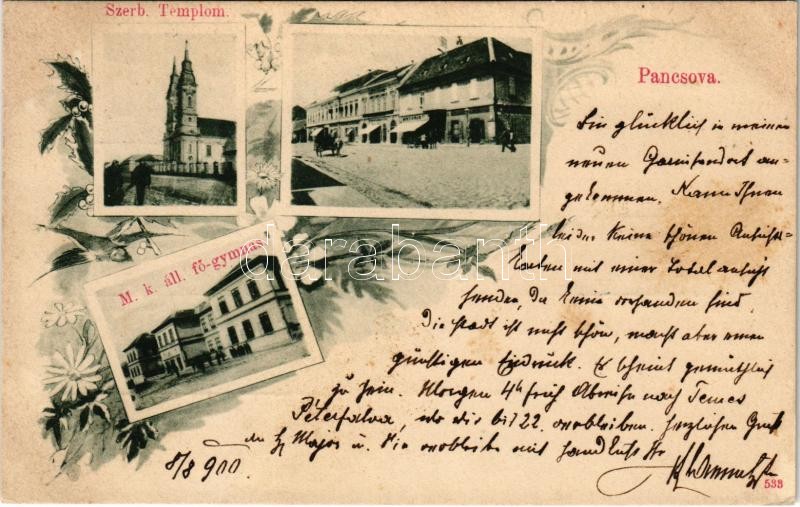 Szerb. Templom.
Pancsova.
M. k. áll. fő-gymnas.
Bin glücklich in meinem
neuen Garnisonsort an-
gekommen. Kann Ihnen
leider keine schönen Ansichts-
karten mit einer Totalansicht
senden, da keine vorhanden sind.
Die Stadt ist nicht schön, macht aber einen
günstigen Eindruck. Es scheint gemüthlich
zu sein. Morgen 4h früh Abreise nach Temes
Péterfalva, wo wir bis 22. verbleiben. Herzlichen Gruß
an H Major u. Sie verbleibe mit Handkuß Ihr
5/8 900.
533
darabanth